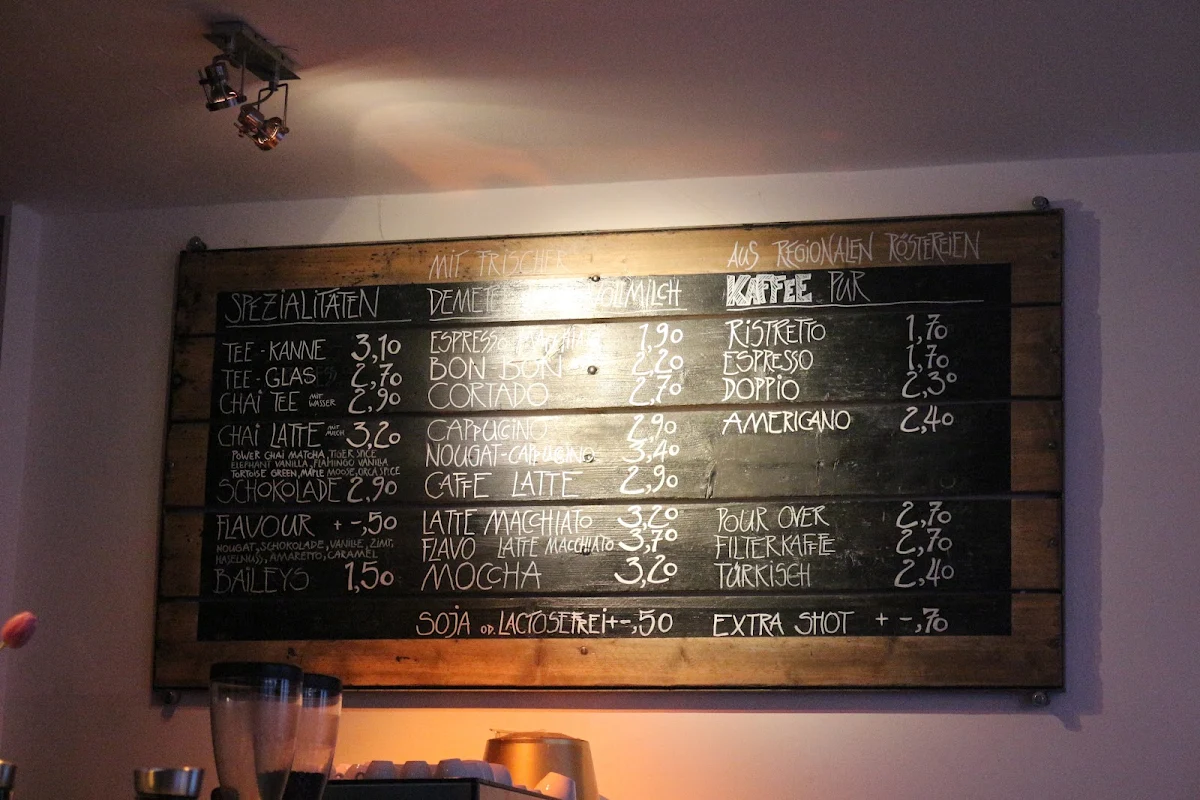 SPEZIALITÄTEN
TEE-KANNE 3,10
TEE-GLAS 2,70
CHAI TEE MIT WASSER 2,90
CHAI LATTE MIT MILCH 3,20
POWER CHAI MATCHA, TIGER SPICE
ELEPHANT VANILLA, FLAMINGO VANILLA
TORTOISE GREEN, MAPLE MOOSE, ORCA SPICE
SCHOKOLADE 2,90
FLAVOUR + -,50
NOUGAT, SCHOKOLADE, VANILLE, ZIMT,
HASELNUSS, AMARETTO, CARAMEL
BAILEYS 1,50
MIT FRISCHER
VOLLMILCH
ESPRESSO MACCHIATO 1,90
BON BON 2,20
CORTADO 2,70
CAPPUCINO 2,90
NOUGAT-CAPPUCINO 3,40
CAFFE LATTE 2,90
LATTE MACCHIATO 3,20
FLAVO LATTE MACCHIATO 3,70
MOCCHA 3,20
SOJA OD. LACTOSEFREI +-,50
AUS REGIONALEN RÖSTEREIEN
KAFFEE PUR
RISTRETTO 1,70
ESPRESSO 1,70
DOPPIO 2,30
AMERICANO 2,40
POUR OVER 2,70
FILTERKAFFE 2,70
TÜRKISCH 2,40
EXTRA SHOT + -,70